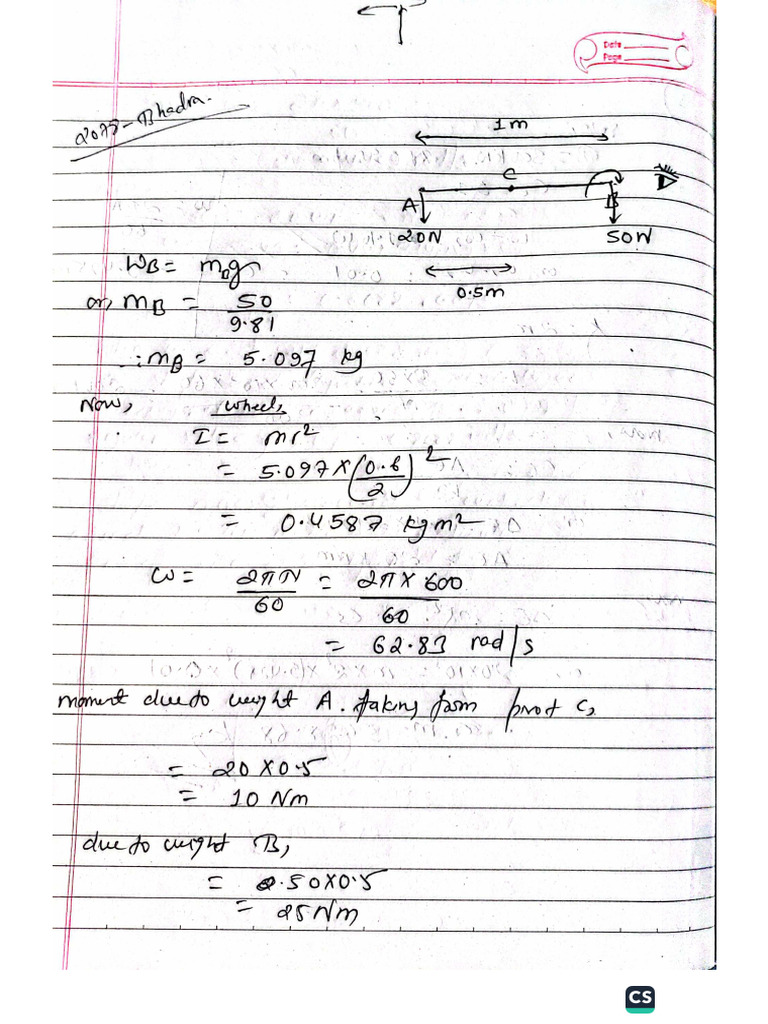 Date
Page
2075-Bhadra.
1m
C
A
B
20N
50N
0.5m
WB = mBg
or, mB = 50/9.81
∴ mB = 5.097 kg
Now, wheel,
I = mr²
= 5.097 × (0.6/2)²
= 0.4587 kgm²
ω = 2πN/60 = 2π×600/60
= 62.83 rad/s
moment due to weight A. taking from pivot C,
= 20×0.5
= 10 Nm
due to weight B,
= 50×0.5
= 25Nm
CS